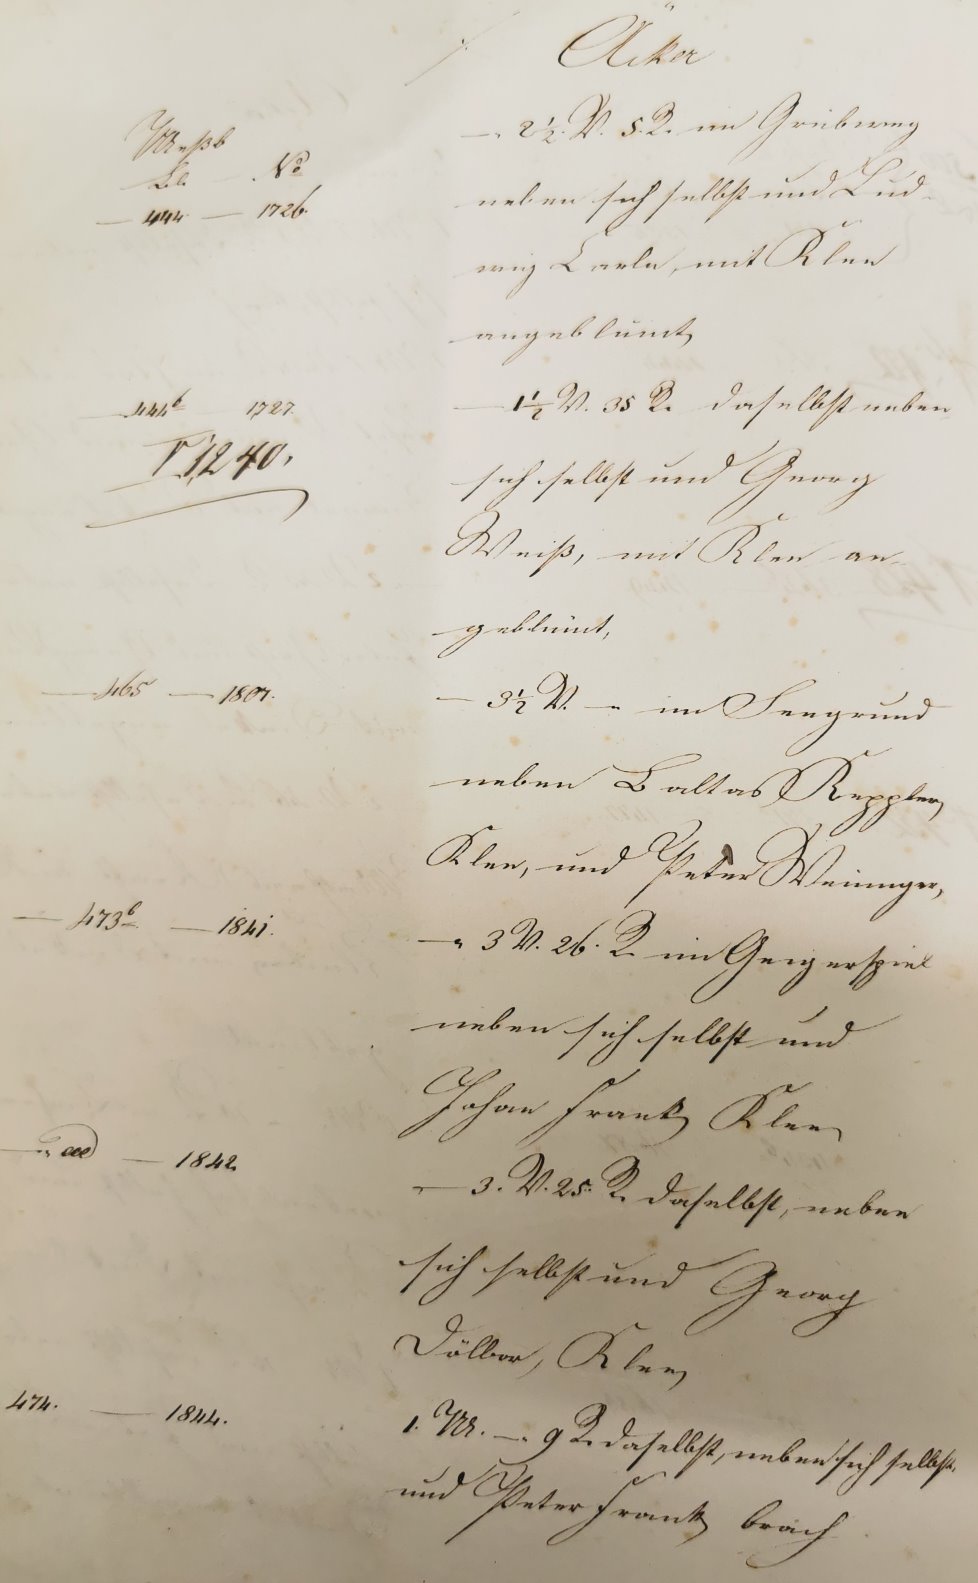 Äcker
Meßb
Bl. No
— 2½. V. 5. R. im Grübweg
— 444 — 1726.
neben sich selbst und Lud-
wig Carle, mit Klee
angeblümt,
— 444b 1727.
— 1½ V. 35 R. daselbst neben
1240.
sich selbst und Georg
Weiß, mit Klee an-
geblümt,
— 465 — 1807.
— 3½ V. — im Seegrund
neben Baltas Keppler,
Klee, und Peter Weininger,
— 473b — 1841.
— 3 V. 26. R. im Geigerspiel
neben sich selbst und
Johan Frank, Klee,
— 1842.
— 3. V. 25. R. daselbst, neben
sich selbst und Georg
Dölker, Klee,
474. — 1844.
1. M. — 9 R. daselbst, neben sich selbst,
und Peter Frank, brach